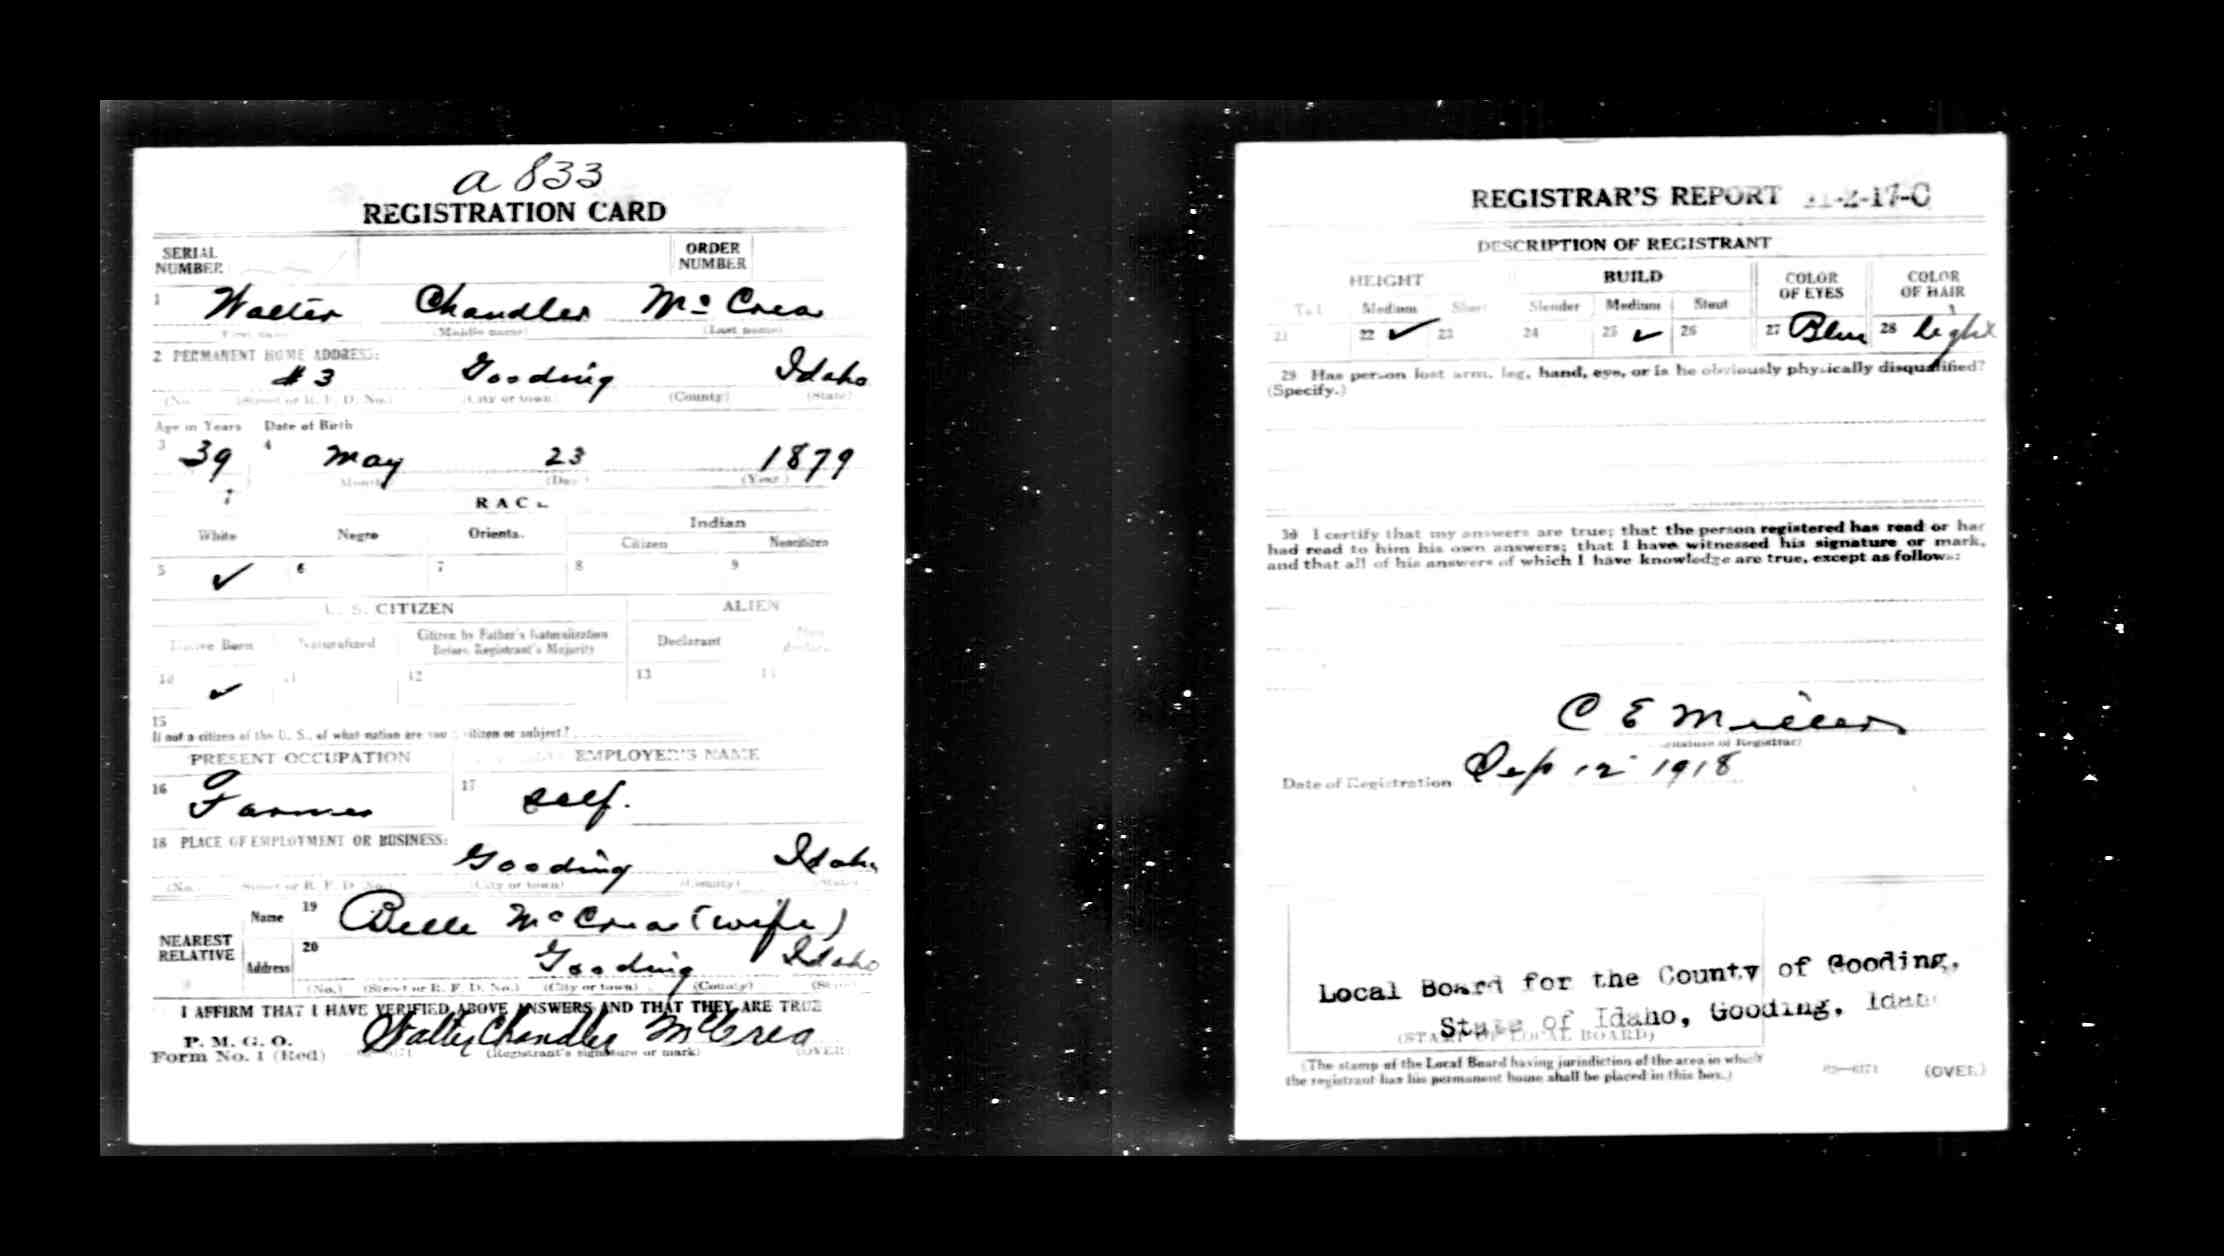 a 833
REGISTRATION CARD
SERIAL NUMBER ORDER NUMBER
1 Walter Chandler McCrea
(Middle name) (Last name)
2 PERMANENT HOME ADDRESS:
#3 Gooding Idaho
(No.) (Street or R. F. D. No.) (City or town) (County) (State)
Age in Years Date of Birth
3 39 4 May 23 1879
Month (Day) (Year)
RACE
White Negro Oriental Indian
Citizen Noncitizen
5 ✓ 6 7 8 9
U. S. CITIZEN ALIEN
Native Born Naturalized Citizen by Father's Naturalization Before Registrant's Majority Declarant
10 ✓ 11 12 13
15
If not a citizen of the U. S., of what nation are you a citizen or subject?
PRESENT OCCUPATION EMPLOYER'S NAME
16 Farmer 17 self.
18 PLACE OF EMPLOYMENT OR BUSINESS:
Gooding Idaho
(No.) (Street or R. F. D. No.) (City or town) (County) (State)
NEAREST RELATIVE Name 19 Belle McCrea (wife)
Address 20 Gooding Idaho
(No.) (Street or R. F. D. No.) (City or town) (County) (State)
I AFFIRM THAT I HAVE VERIFIED ABOVE ANSWERS AND THAT THEY ARE TRUE
P. M. G. O.
Form No. 1 (Red) Walter Chandler McCrea
(Registrant's signature or mark) (OVER)
REGISTRAR'S REPORT 11-2-17-C
DESCRIPTION OF REGISTRANT
HEIGHT BUILD COLOR OF EYES COLOR OF HAIR
Tall Medium Short Slender Medium Stout
21 22 ✓ 23 24 25 ✓ 26 27 Blue 28 Light
29 Has person lost arm, leg, hand, eye, or is he obviously physically disqualified?
(Specify.)
30 I certify that my answers are true; that the person registered has read or has
had read to him his own answers; that I have witnessed his signature or mark,
and that all of his answers of which I have knowledge are true, except as follows:
C E Miller
(Signature of Registrar)
Date of Registration Sep 12 1918
Local Board for the County of Gooding,
State of Idaho, Gooding, Idaho
(STAMP OF LOCAL BOARD)
(The stamp of the Local Board having jurisdiction of the area in which
the registrant has his permanent home shall be placed in this box.)
03—6171 (OVER)